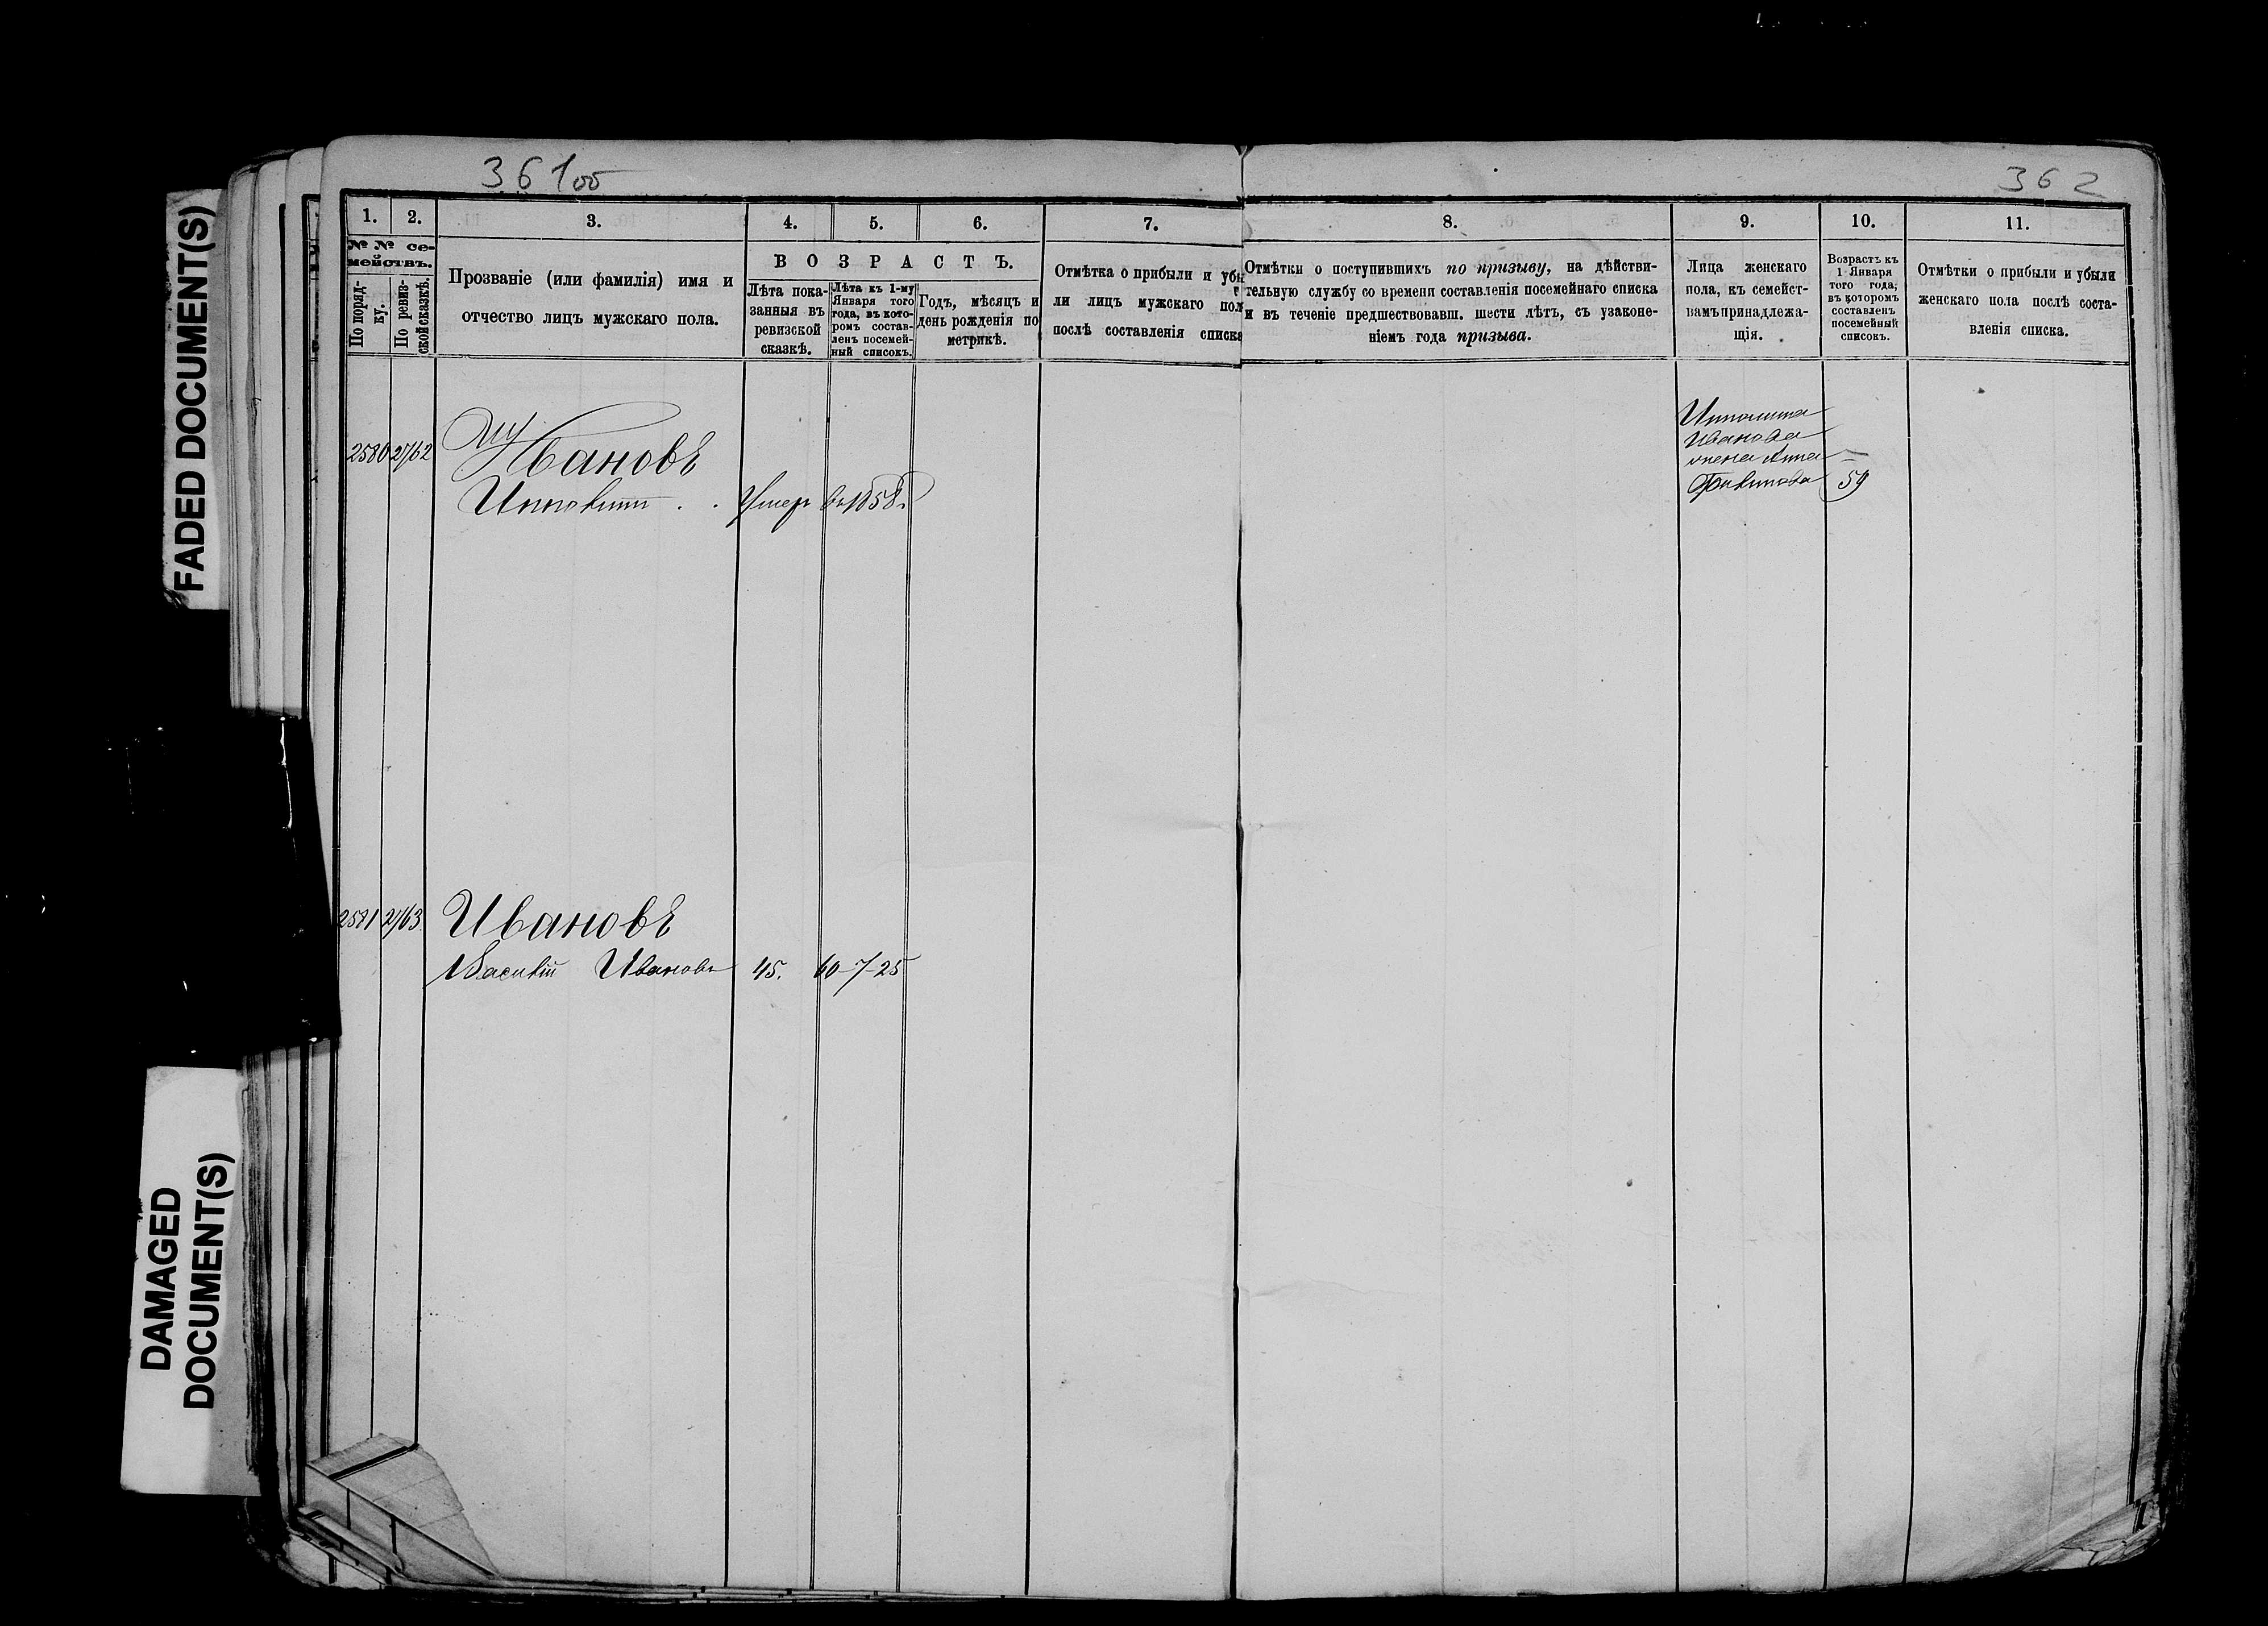 361об
362
FADED DOCUMENT(S)
DAMAGED
DOCUMENT(S)
1.
2.
3.
4.
5.
6.
7.
8.
9.
10.
11.
№ № се-
мействъ.
По поряд-
ку.
По ревиз-
ской сказкѣ.
Прозваніе (или фамилія) имя и
отчество лицъ мужскаго пола.
ВОЗРАСТЪ.
Лѣта пока-
занныя въ
ревизской
сказкѣ.
Лѣта къ 1-му
Января того
года, въ кото-
ромъ состав-
ленъ посемей-
ный списокъ.
Годъ, мѣсяцъ и
день рожденія по
метрикѣ.
Отмѣтка о прибыли и убы
ли лицъ мужскаго пол
послѣ составленія списка
Отмѣтки о поступившихъ по призыву, на дѣйстви-
тельную службу со времени составленія посемейнаго списка
и въ теченіе предшествовавш. шести лѣтъ, съ узаконе-
ніемъ года призыва.
Лица женскаго
пола, къ семейст-
вамъ принадлежа-
щія.
Возрастъ къ
1 Января
того года,
въ которомъ
составленъ
посемейный
списокъ.
Отмѣтки о прибыли и убыли
женскаго пола послѣ соста-
вленія списка.
2580 2762
Ивановъ
Ипполитъ . . Умеръ въ 1858г.
Ипполита
Иванова
жена Анна
59
2581 2763
Ивановъ
Василій Ивановъ 45. 60-7-25